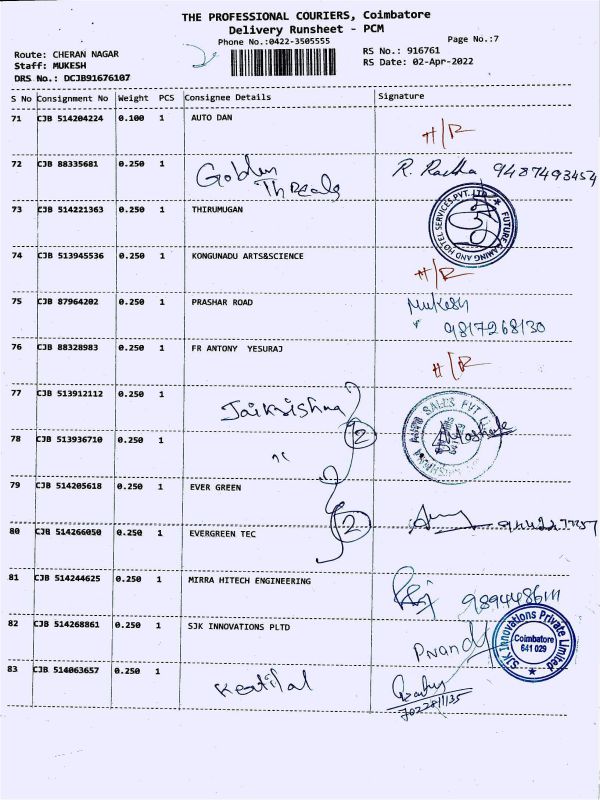 THE PROFESSIONAL COURIERS, Coimbatore
Delivery Runsheet - PCM
Phone No.:0422-3505555
Page No.:7
Route: CHERAN NAGAR
RS No.: 916761
Staff: MUKESH
RS Date: 02-Apr-2022
DRS No.: DCJB91676107
S No Consignment No Weight PCS Consignee Details Signature
71 CJB 514204224 0.100 1 AUTO DAN H/R
72 CJB 88335681 0.250 1 Golden Threads R. Radha 9487493454
73 CJB 514221363 0.250 1 THIRUMUGAN FUTURE GAMING AND HOTEL SERVICES PVT. LTD
74 CJB 513945536 0.250 1 KONGUNADU ARTS&SCIENCE H/R
75 CJB 87964202 0.250 1 PRASHAR ROAD Mukesh
9817268130
76 CJB 88328983 0.250 1 FR ANTONY YESURAJ H/R
77 CJB 513912112 0.250 1 Jaikrishna AUTO SALES PVT
78 CJB 513936710 0.250 1 2
79 CJB 514205618 0.250 1 EVER GREEN
80 CJB 514266050 0.250 1 EVERGREEN TEC 2
81 CJB 514244625 0.250 1 MIRRA HITECH ENGINEERING
82 CJB 514268861 0.250 1 SJK INNOVATIONS PLTD SJK Innovations Private Limited
Coimbatore
641 029
83 CJB 514063657 0.250 1